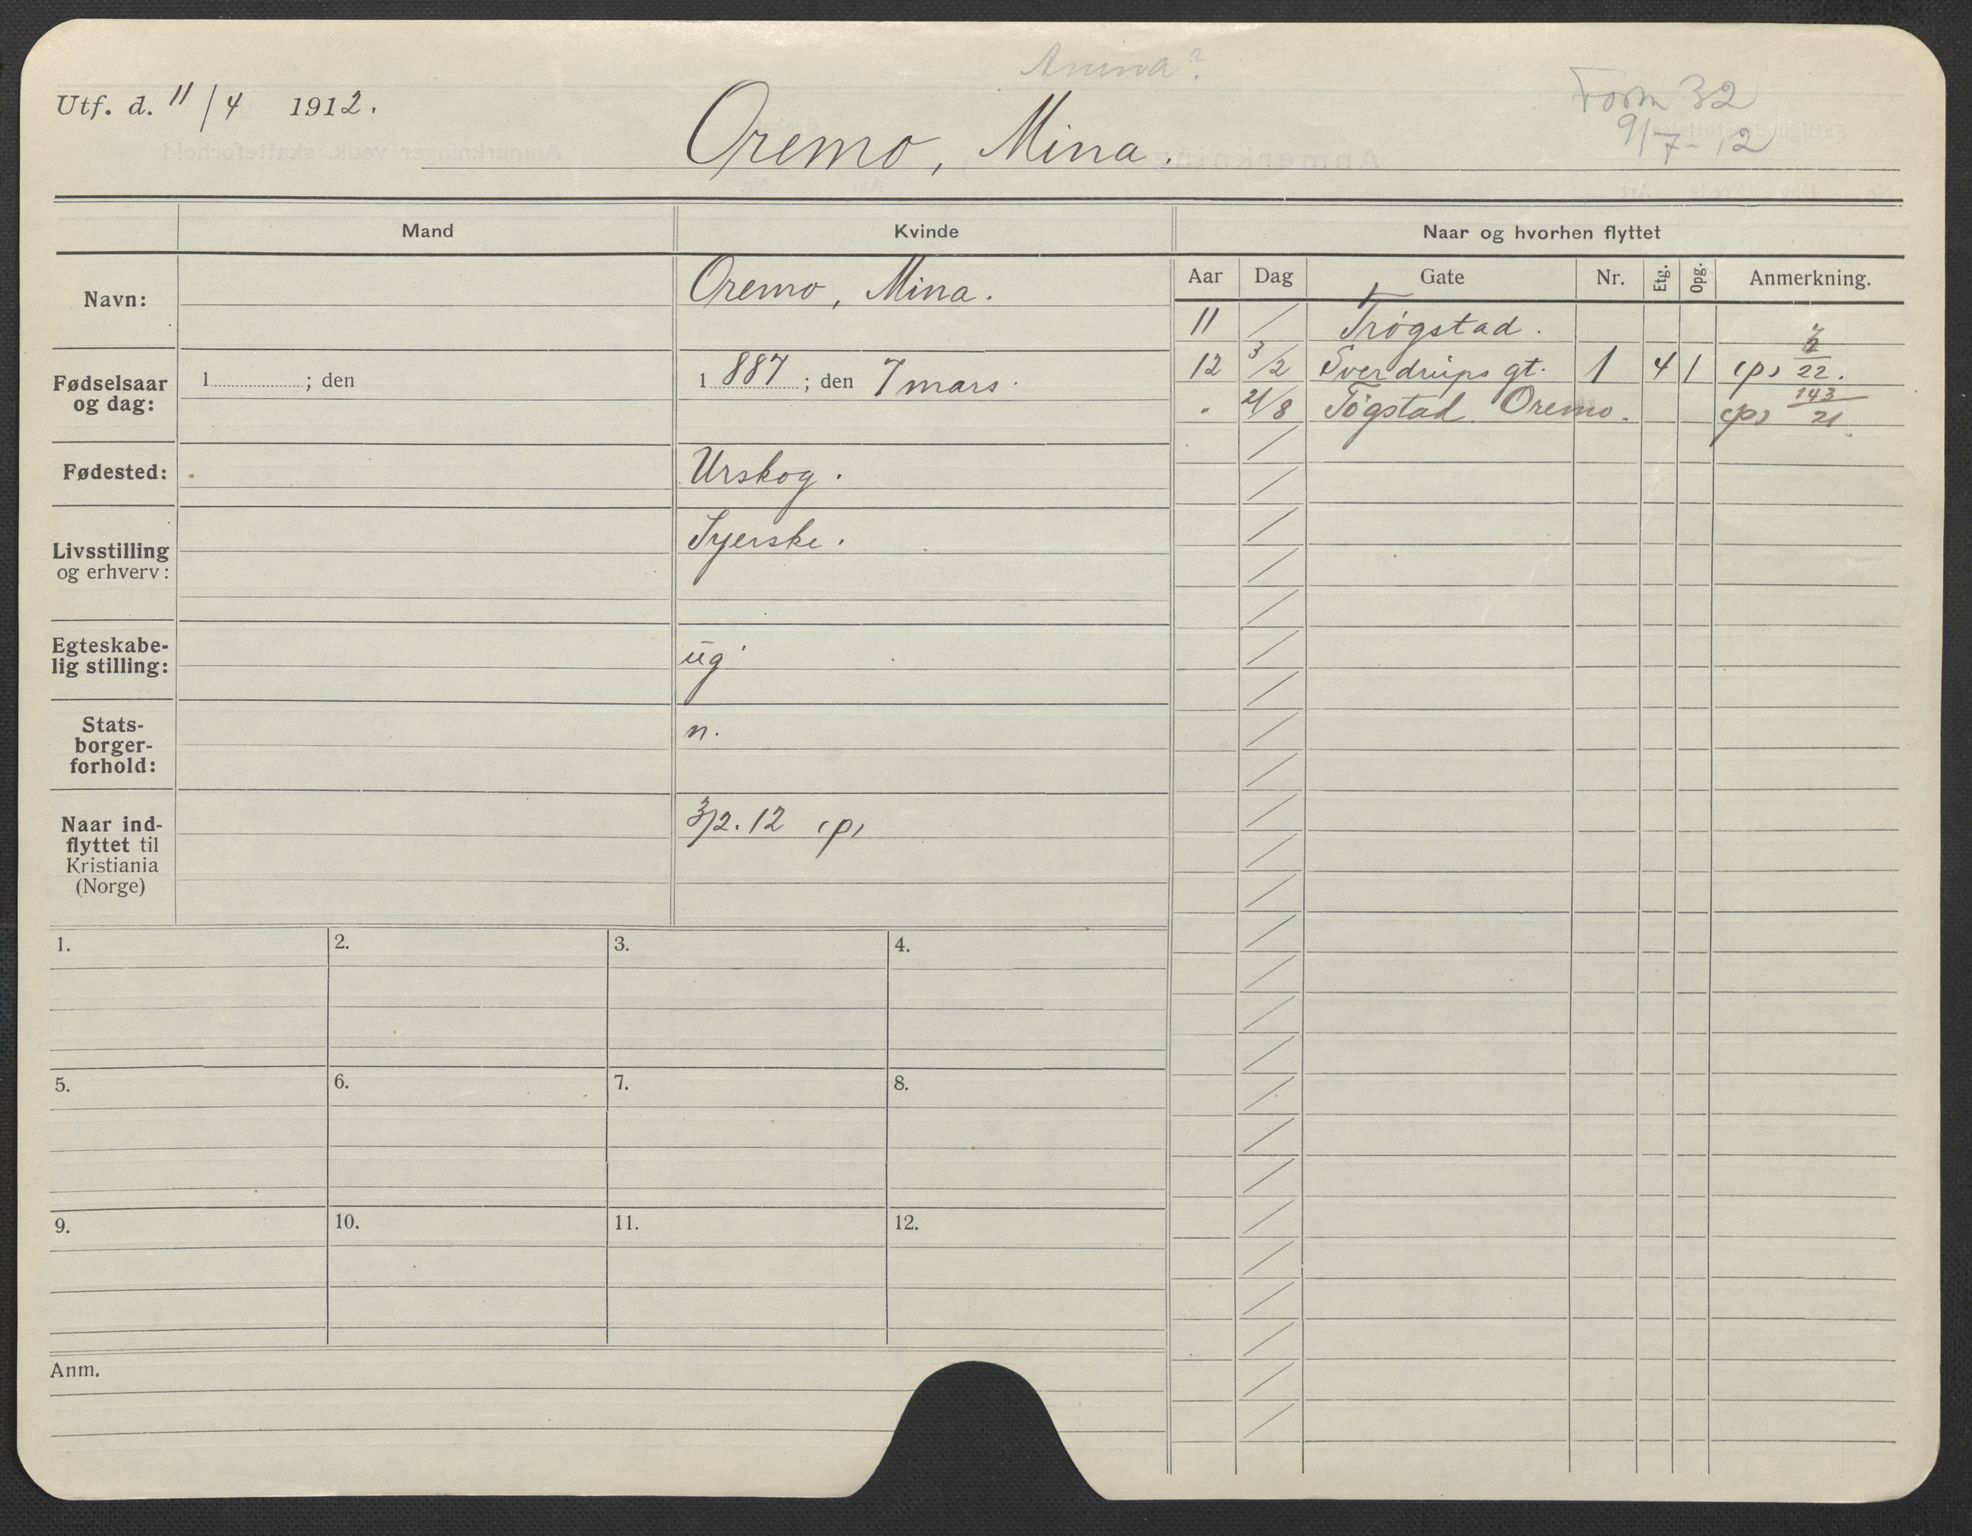 Anina?
Utf. d. 11/4 1912.
Oremo, Mina.
Form 32
9/7-12
Mand
Kvinde
Naar og hvorhen flyttet
Aar Dag Gate Nr. Etg. Opg. Anmerkning.
Navn:
Oremo, Mina.
Fødselsaar
og dag:
1 ; den
1887 ; den 7 mars.
Fødested:
Urskog.
Livsstilling
og erhverv:
Syerske.
Egteskabe-
lig stilling:
ug
Stats-
borger-
forhold:
n.
Naar ind-
flyttet til
Kristiania
(Norge)
3/2.12 (p)
11 Trøgstad.
12 3/2 Sverdrups gt. 1 4 1 (p) 22.
" 21/8 Tøgstad Oremo. (p) 143/21
1. 2. 3. 4.
5. 6. 7. 8.
9. 10. 11. 12.
Anm.